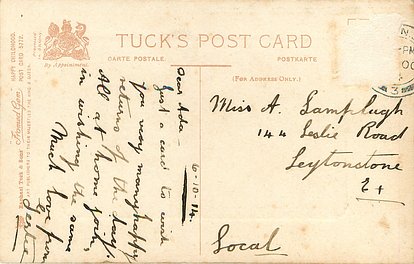 TUCK'S POST CARD
CARTE POSTALE.
POSTKARTE
(FOR ADDRESS ONLY.)
By Appointment.
6-10-14.
Dear Ada-
Just a card to wish
you very many happy
returns of the day.
All at home join
in wishing the same
Much love from
Gertie
Miss A. Lamplugh
144 Leslie Road
Leytonstone
Local